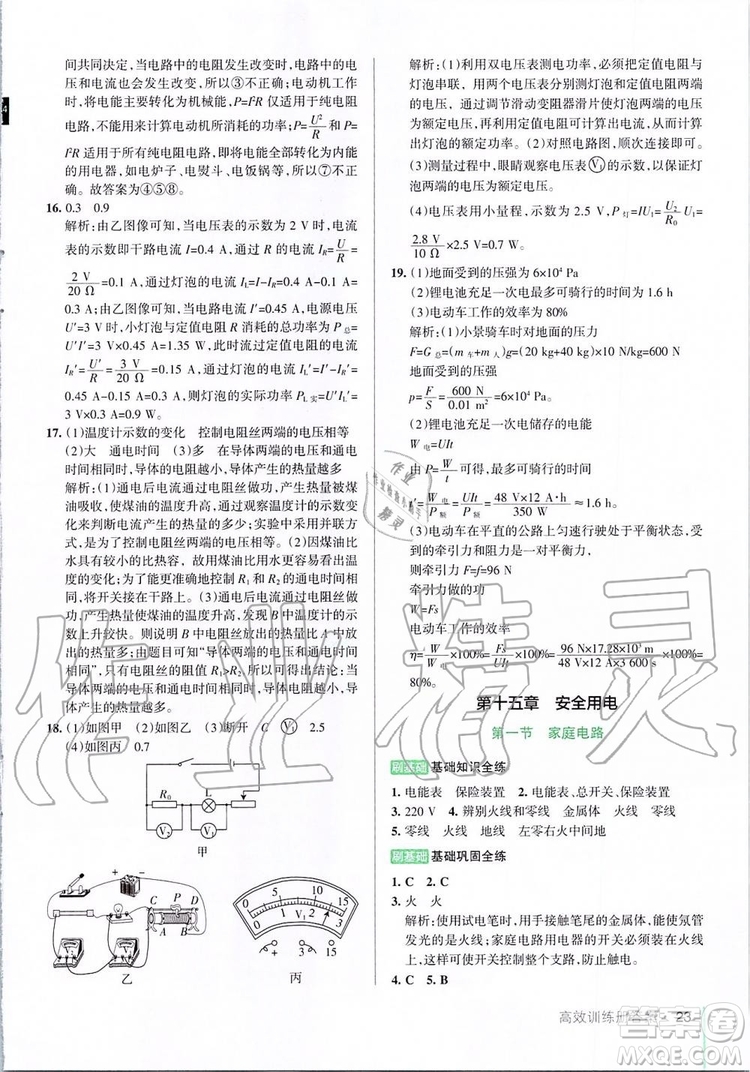 间共同决定，当电路中的电阻发生改变时，电路中的电
压和电流也会发生改变，所以③不正确；电动机工作
时，将电能主要转化为机械能，P=I²R 仅适用于纯电阻
电路，不能用来计算电动机所消耗的功率；P=U²/R 和 P=
I²R 所有纯电阻电路中，将电能全部转化为内能
的用电器，如电炉子、电熨斗、电饭锅等，所以⑦不正
确。故答案为④⑤⑧。
16. 0.3　0.9
解析：由乙图像可知，当电压表的示数为 2 V 时，电流表
的示数即干路电流 I=0.4 A，通过 R 的电流 I_R=U/R
=2 V/20 Ω=0.1 A，通过灯泡的电流 I_L=I-I_R=0.4 A-0.1 A=
0.3 A；由乙图像可知，当电流 I′=0.45 A 时，电源电压
U′=3 V，小灯泡与定值电阻 R 消耗的总功率 P总=
U′I′=3 V×0.45 A=1.35 W，此时流过定值电阻的电流
I_R′=U′/R=3 V/20 Ω=0.15 A，通过灯泡的电流 I_L′=I′-I_R′=
0.45 A-0.15 A=0.3 A，则灯泡的实际功率 P_L实=U′I_L′=
3 V×0.3 A=0.9 W。
17. (1)温度计示数的变化　控制电阻丝两端的电压相等
(2)大　通电时间　(3)多　在导体两端的电压和通电
时间相同时，导体的电阻越小，导体产生的热量越多
解析：(1)通电后电流通过电阻丝做功，产生热量被煤
油吸收，使煤油的温度升高，故该实验是根据温度计示数
变化来判断电流产生的热量的多少；实验中并联电阻
丝，是为了控制电阻丝两端的电压相等。(2)因煤油比
水具有较小的比热容，故用煤油比用水更容易看出温
度的变化；为了能更准确地控制 R₁ 和 R₂ 的通电时间
相等，开关应接在干路上。(3)通过电流通过电阻丝做
功，产生热量使煤油的温度升高，发现 B 中温度计的示
数上升较快。则说明 B 中电阻丝放出的热量比 A 中
放出的多；由题意可知，在“导体两端的电压和通电时间
相同”时，有电阻丝的阻值 R₁>R₂，所以得到的结论是：
导体两端的电压和通电时间相同时，导体的电阻越小，
导体产生的热量越多。
18. (1)如图甲　(2)如图乙　(3)断开　C　V₁　2.5
(4)如图丙　0.7
R₀　L
V₂　V₁
甲
P
C　D
A　B
乙
0　5　10　15
0　1　2　3
V
3　15
丙
解析：(1)利用双电压表测电功率，必须把定值电阻与
灯泡串联，用两个电压表分别测灯泡和定值电阻两端
的电压，通过调节滑动变阻器滑片使灯泡两端的电压
为额定电压，由定值电阻可计算出额定电流，从而计算
出灯泡的额定功率。(2)对照电路图，顺次连接即可。
(3)测量过程中，眼睛观察电压表 V₁ 的示数，以保证灯
泡两端的电压为额定电压。
(4)电压表用小量程，示数为 2.8 V，P灯=IU₁=U₂/R₀ U₁=
2.8 V/10 Ω×2.5 V=0.7 W。
19. (1)地面受到的压强为 6×10⁴ Pa
(2)锂电池充足一次电最多可骑行的时间为 1.6 h
(3)电动车工作的效率为 80%
解析：(1)小景骑车时对地面的压力
F=G总=(m车+m人)g=(20 kg+40 kg)×10 N/kg=600 N
地面受到的压强
p=F/S=600 N/0.01 m²=6×10⁴ Pa。
(2)锂电池充足一次电储存的电能
W电=UIt
由 P=W/t 可得，可骑行的最多时间
t=W电/P额=UIt/P额=48 V×12 A·h/350 W≈1.6 h。
(3)电动车在平直的公路上匀速行驶处于平衡状态，受
到的牵引力和阻力是一对平衡力，
则牵引力 F=f=96 N
牵引力做的功
W=Fs
电动车工作的效率
η=W/W电×100%=Fs/UIt×100%=96 N×17.28×10³ m/48 V×12 A×3 600 s×100%=
80%。
第十五章　安全用电
第一节　家庭电路
刷基础 基础知识全练
1. 电能表　保险装置　2. 电能表、总开关、保险装置
3. 220 V　4. 辨别火线和零线　金属体　火线　零线
5. 零线　火线　地线　左零右火中间地
刷基础 基础巩固全练
1. C　2. C
3. 火　火
解析：使用试电笔时，用手接触笔尾的金属体，能使氖管
发光的是火线；家庭电路用电器的开关必须接在火线
上，这样可使开关控制整个支路，防止触电。
4. C　5. B
高效训练册答案　23
作业精灵
答案圈
MXQE.COM